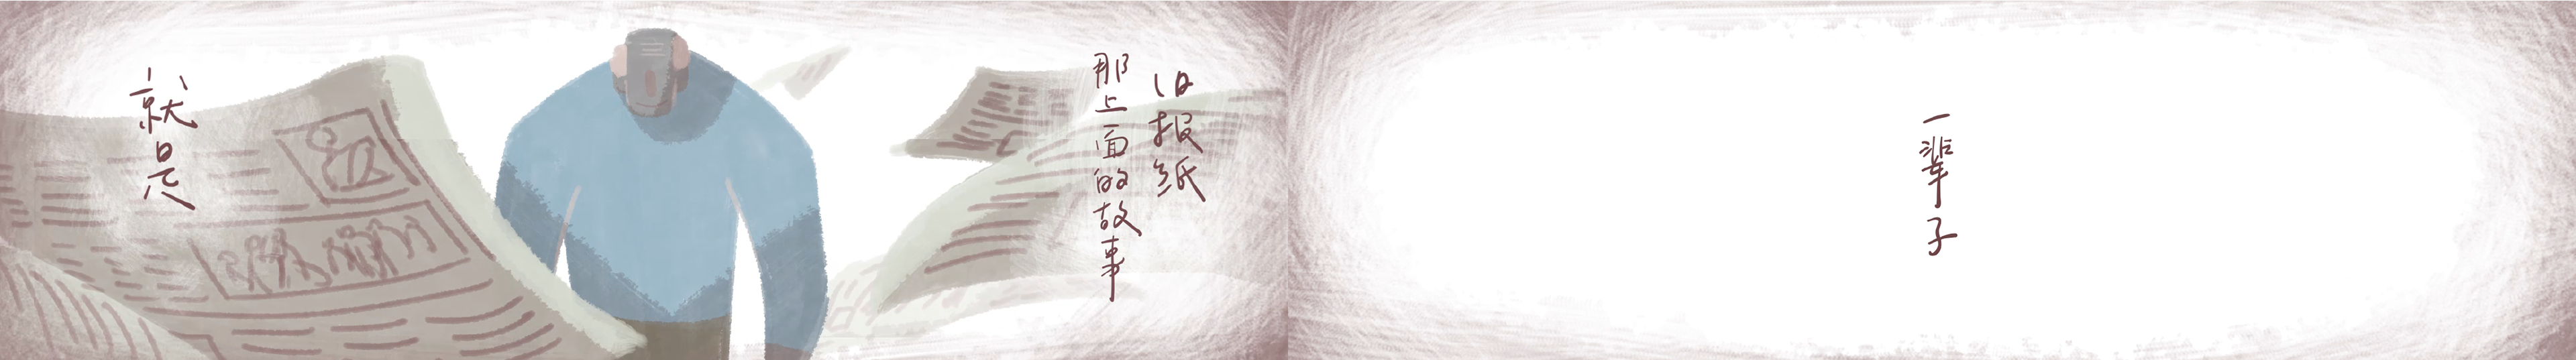 旧报纸
那上面的故事
就是
一辈子